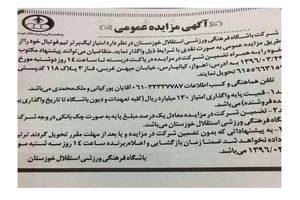 آگهی مزایده عمومی
شرکت باشگاه فرهنگی ورزشی استقلال خوزستان در نظر دارد امتیاز لیگ برتر تیم فوتبال خود را از
طریق مزایده عمومی به صورت نقدی با شرایط ذیل واگذار نماید. متقاضیان می توانند پیشنهاد مکتوب
خود را به همراه تضمین شرکت در مزایده در پاکت دربسته تا ساعت ۱۴ روز دوشنبه مورخ
اهواز، کیانپارس، خیابان میهن غربی، فاز ۳ پلاک ۱۱۸ کدپستی
تحویل نمایند.
تلفن هماهنگی و کسب اطلاعات ۳۳۳۳۷۷۸۷-۰۶۱ آقایان پورکیانی و ملک محمدی می باشد.
قیمت پایه واگذاری امتیاز ۱۳۰ میلیارد ریال (کلیه تعهدات و دیون باشگاه تا تاریخ واگذاری به
عهده فروشنده) می باشد.
تضمین شرکت در مزایده معادل یک درصد مبلغ پایه به صورت چک بانکی در وجه شرکت
باشگاه فرهنگی ورزشی استقلال خوزستان می باشد.
به پیشنهاداتی که بدون تضمین شرکت در مزایده و یا بعد از مهلت مقرر تحویل گردند ترتیب
داده نخواهد شد ضمنا زمان بازگشایی و اعلام برنده ساعت ۱۴ روز سه شنبه مورخ
می باشد.
باشگاه فرهنگی ورزشی استقلال خوزستان